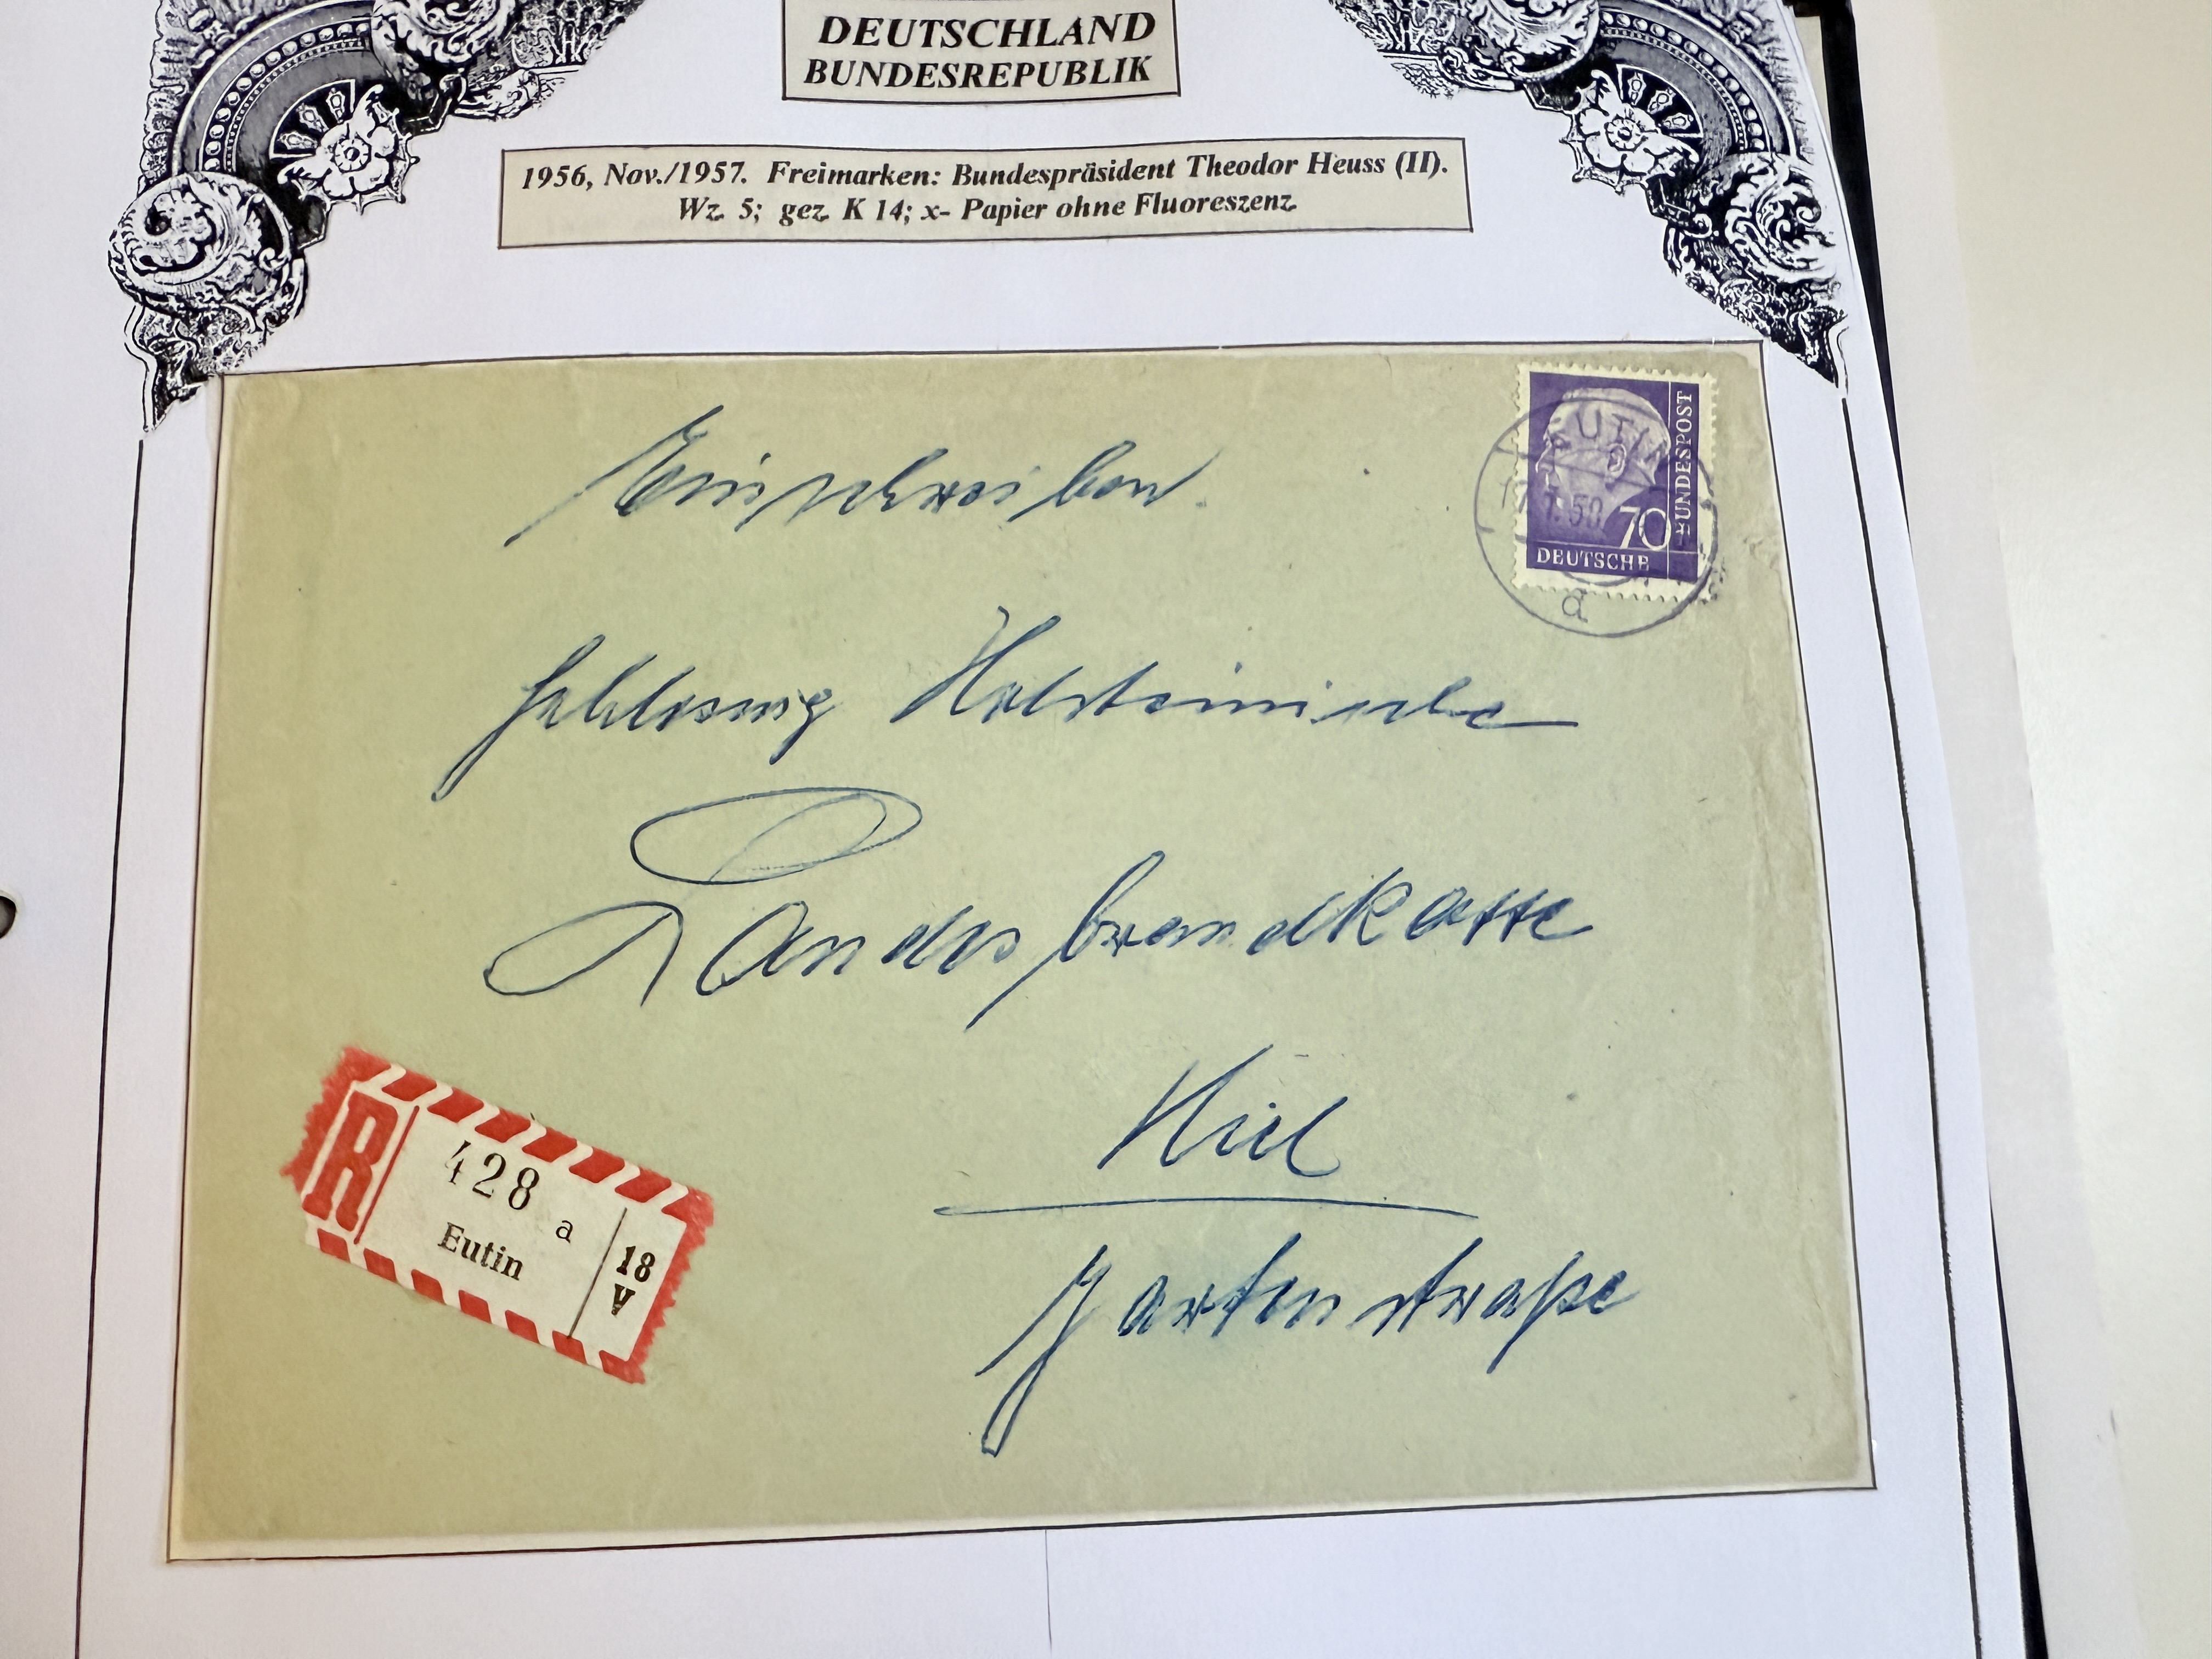 DEUTSCHLAND
BUNDESREPUBLIK
1956, Nov./1957. Freimarken: Bundespräsident Theodor Heuss (II).
Wz. 5; gez. K 14; x- Papier ohne Fluoreszenz.
Einschreiben.
70
BUNDESPOST
DEUTSCHE
a
Schleswig Holsteinische
Landesbrandkasse
Kiel
Gartenstraße
R
428 a
Eutin
18
V